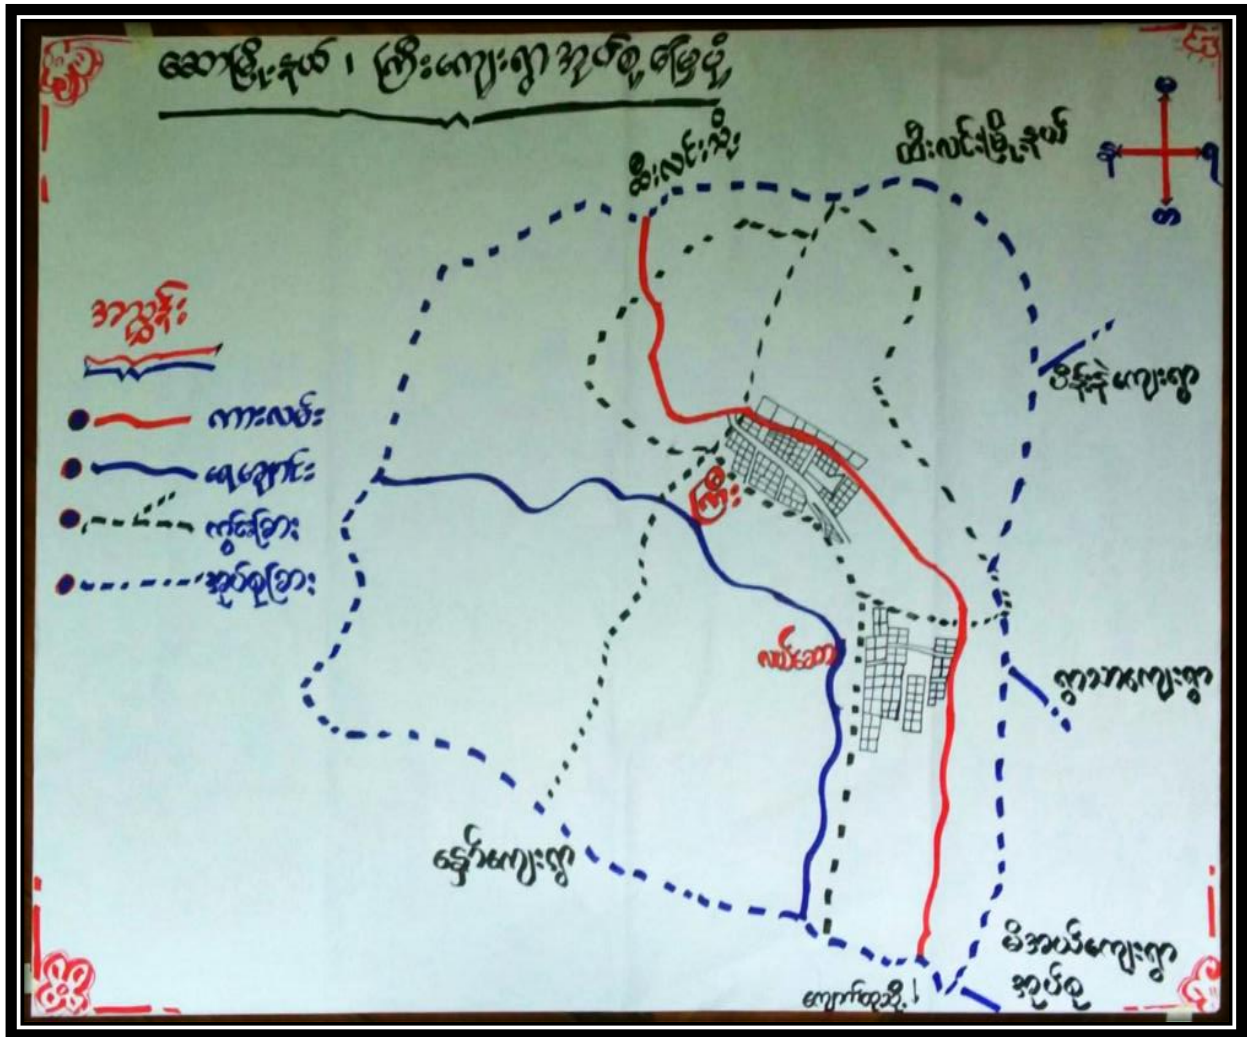 ဆောမြို့နယ်၊ ကြီးကျေးရွာအုပ်စု မြေပုံ
ထီးလင်းသို့
ထီးလင်းမြို့နယ်
မ
န
တ
အညွှန်း
ကားလမ်း
ရေချောင်း
ကွင်းခြား
အုပ်စုခြား
ကြီး
လယ်ဆော
ရွာသာကျေးရွာ
မိအယ်ကျေးရွာ
အုပ်စု
ကျောက်ထုသို့